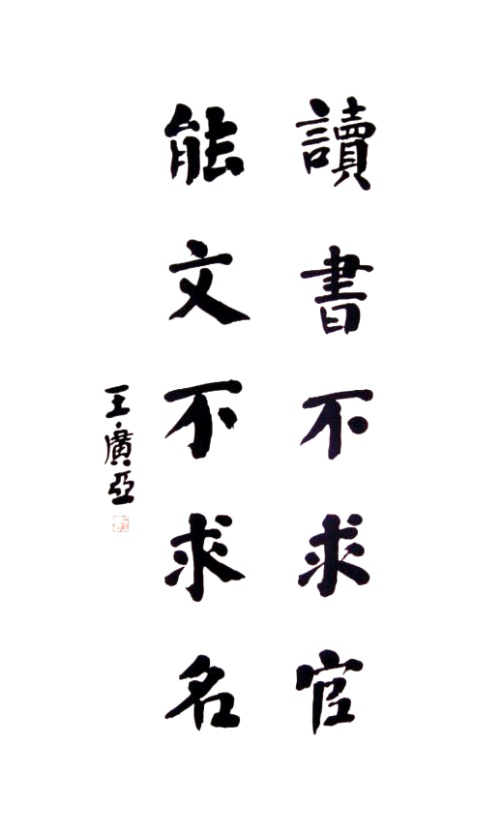 讀書不求官
能文不求名
王廣亞